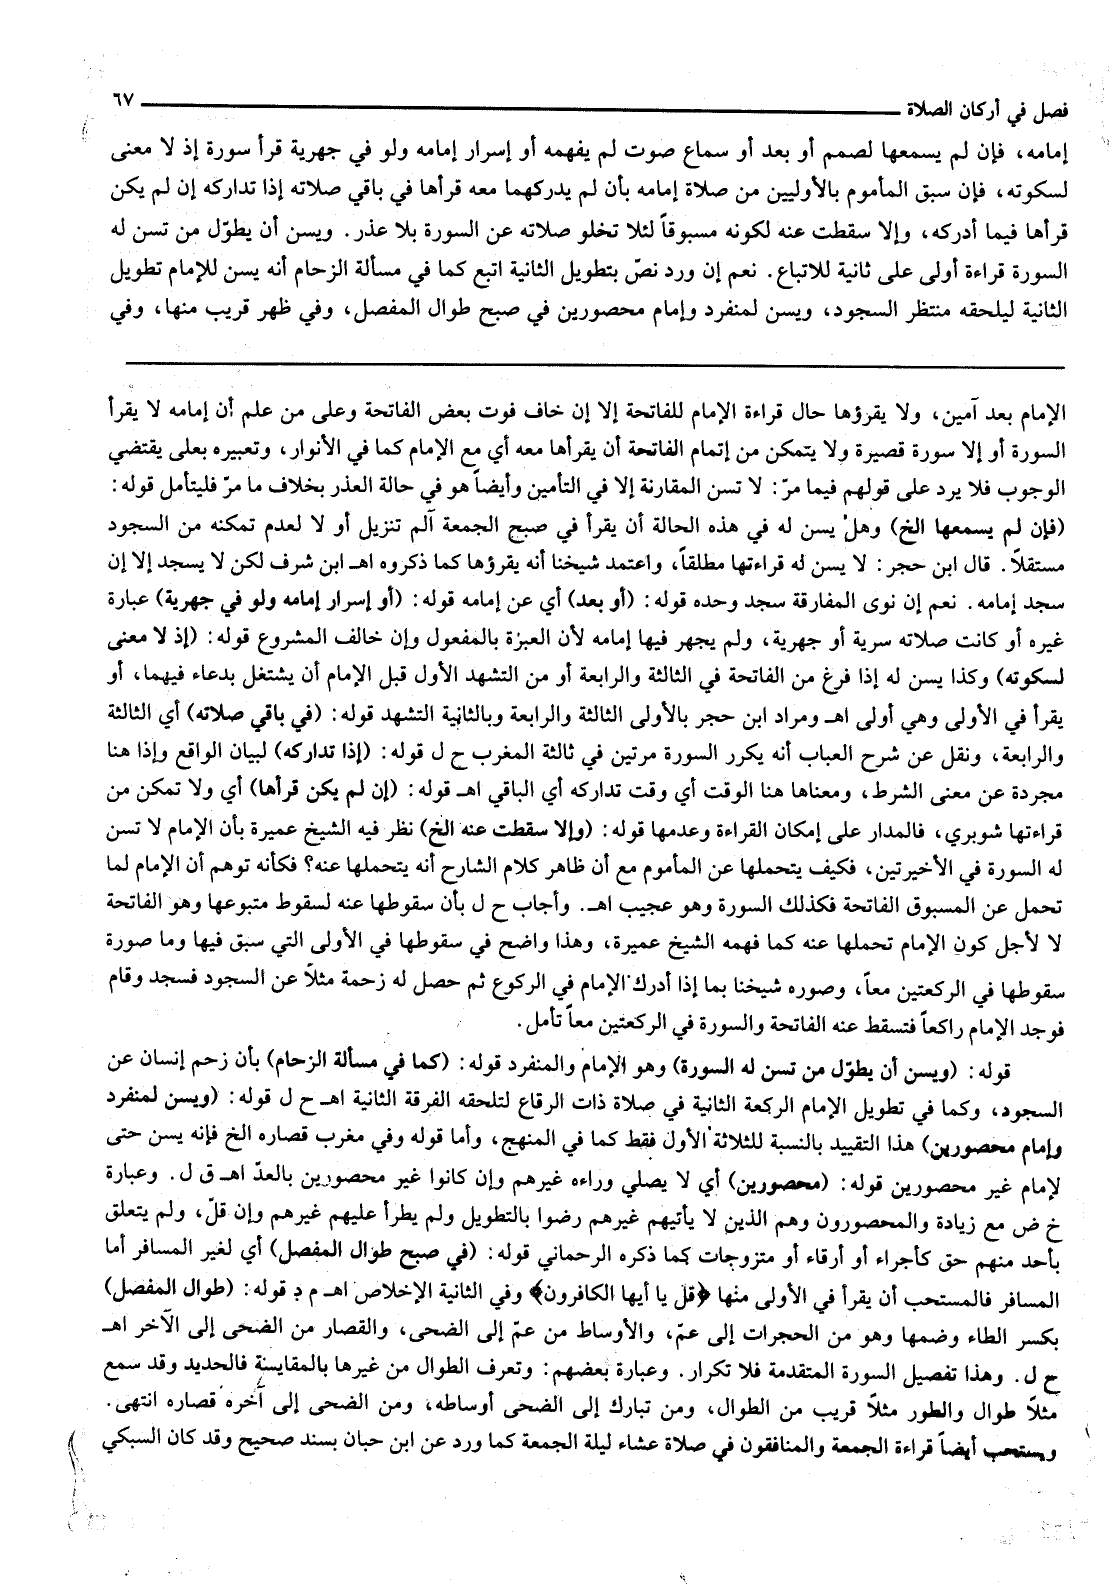 فصل في أركان الصلاة ٦٧
إمامه، فإن لم يسمعها لصمم أو بعد أو سماع صوت لم يفهمه أو إسرار إمامه ولو في جهرية قرأ سورة إذ لا معنى
لسكوته، فإن سبق المأموم بالأوليين من صلاة إمامه بأن لم يدركهما معه قرأها في باقي صلاته إذا تداركه إن لم يكن
قرأها فيما أدركه، وإلا سقطت عنه لكونه مسبوقاً لئلا تخلو صلاته عن السورة بلا عذر. ويسن أن يطوّل من تسن له
السورة قراءة أولى على ثانية للاتباع. نعم إن ورد نصّ بتطويل الثانية اتبع كما في مسألة الزحام أنه يسن للإمام تطويل
الثانية ليلحقه منتظر السجود، ويسن لمنفرد وإمام محصورين في صبح طوال المفصل، وفي ظهر قريب منها، وفي
الإمام بعد آمين، ولا يقرؤها حال قراءة الإمام للفاتحة إلا إن خاف فوت بعض الفاتحة وعلى من علم أن إمامه لا يقرأ
السورة أو إلا سورة قصيرة ولا يتمكن من إتمام الفاتحة أن يقرأها معه أي مع الإمام كما في الأنوار، وتعبيره بعلى يقتضي
الوجوب فلا يرد على قولهم فيما مرّ: لا تسن المقارنة إلا في التأمين وأيضاً هو في حالة العذر بخلاف ما مرّ فليتأمل قوله:
(فإن لم يسمعها الخ) وهل يسن له في هذه الحالة أن يقرأ في صبح الجمعة آلم تنزيل أو لا لعدم تمكنه من السجود
مستقلاً. قال ابن حجر: لا يسن له قراءتها مطلقاً، واعتمد شيخنا أنه يقرؤها كما ذكروه اهـ ابن شرف لكن لا يسجد إلا إن
سجد إمامه. نعم إن نوى المفارقة سجد وحده قوله: (أو بعد) أي عن إمامه قوله: (أو إسرار إمامه ولو في جهرية) عبارة
غيره أو كانت صلاته سرية أو جهرية، ولم يجهر فيها إمامه لأن العبزة بالمفعول وإن خالف المشروع قوله: (إذ لا معنى
لسكوته) وكذا يسن له إذا فرغ من الفاتحة في الثالثة والرابعة أو من التشهد الأول قبل الإمام أن يشتغل بدعاء فيهما، أو
يقرأ في الأولى وهي أولى اهـ ومراد ابن حجر بالأولى الثالثة والرابعة وبالثانية التشهد قوله: (في باقي صلاته) أي الثالثة
والرابعة، ونقل عن شرح العباب أنه يكرر السورة مرتين في ثالثة المغرب ح ل قوله: (إذا تداركه) لبيان الواقع وإذا هنا
مجردة عن معنى الشرط، ومعناها هنا الوقت أي وقت تداركه أي الباقي اهـ قوله: (إن لم يكن قرأها) أي ولا تمكن من
قراءتها شوبري، فالمدار على إمكان القراءة وعدمها قوله: (وإلا سقطت عنه الخ) نظر فيه الشيخ عميرة بأن الإمام لا تسن
له السورة في الأخيرتين، فكيف يتحملها عن المأموم مع أن ظاهر كلام الشارح أنه يتحملها عنه؟ فكأنه توهم أن الإمام لما
تحمل عن المسبوق الفاتحة فكذلك السورة وهو عجيب اهـ. وأجاب ح ل بأن سقوطها عنه لسقوط متبوعها وهو الفاتحة
لا لأجل كون الإمام تحملها عنه كما فهمه الشيخ عميرة، وهذا واضح في سقوطها في الأولى التي سبق فيها وما صورة
سقوطها في الركعتين معاً، وصوره شيخنا بما إذا أدرك الإمام في الركوع ثم حصل له زحمة مثلاً عن السجود فسجد وقام
فوجد الإمام راكعاً فتسقط عنه الفاتحة والسورة في الركعتين معاً تأمل.
قوله: (ويسن أن يطوّل من تسن له السورة) وهو الإمام والمنفرد قوله: (كما في مسألة الزحام) بأن زحم إنسان عن
السجود، وكما في تطويل الإمام الركعة الثانية في صلاة ذات الرقاع لتلحقه الفرقة الثانية اهـ ح ل قوله: (ويسن لمنفرد
وإمام محصورين) هذا التقييد بالنسبة للثلاثة الأول فقط كما في المنهج، وأما قوله وفي مغرب قصاره الخ فإنه يسن حتى
لإمام غير محصورين قوله: (محصورين) أي لا يصلي وراءه غيرهم وإن كانوا غير محصورين بالعدّ اهـ ق ل. وعبارة
خ ض مع زيادة والمحصورون وهم الذين لا يأتيهم غيرهم رضوا بالتطويل ولم يطرأ عليهم غيرهم وإن قلّ، ولم يتعلق
بأحد منهم حق كأجراء أو أرقاء أو متزوجات كما ذكره الرحماني قوله: (في صبح طوال المفصل) أي لغير المسافر أما
المسافر فالمستحب أن يقرأ في الأولى منها ﴿قل يا أيها الكافرون﴾ وفي الثانية الإخلاص اهـ م د قوله: (طوال المفصل)
بكسر الطاء وضمها وهو من الحجرات إلى عمّ، والأوساط من عمّ إلى الضحى، والقصار من الضحى إلى الآخر اهـ
ح ل. وهذا تفصيل السورة المتقدمة فلا تكرار. وعبارة بعضهم: وتعرف الطوال من غيرها بالمقايسة فالحديد وقد سمع
مثلاً طوال والطور مثلاً قريب من الطوال، ومن تبارك إلى الضحى أوساطه، ومن الضحى إلى آخره قصاره انتهى.
ويستحب أيضاً قراءة الجمعة والمنافقون في صلاة عشاء ليلة الجمعة كما ورد عن ابن حبان بسند صحيح وقد كان السبكي